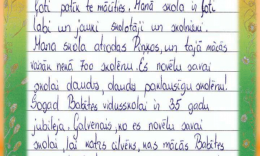 ļoti patīk te mācīties. Manā skolā ir ļoti
labi un jauki skolotāji un skolnieki.
Mana skola atrodas Piņķos, un tajā mācās
vairāk nekā 700 skolēnu. Es novēlu savai
skolai daudz, daudz paklausīgu skolēnu!
Šogad Babītes vidusskolai ir 35 gadu
jubileja. Galvenais, ko es novēlu savai
skolai, lai katrs cilvēks, kas mācās Babītes